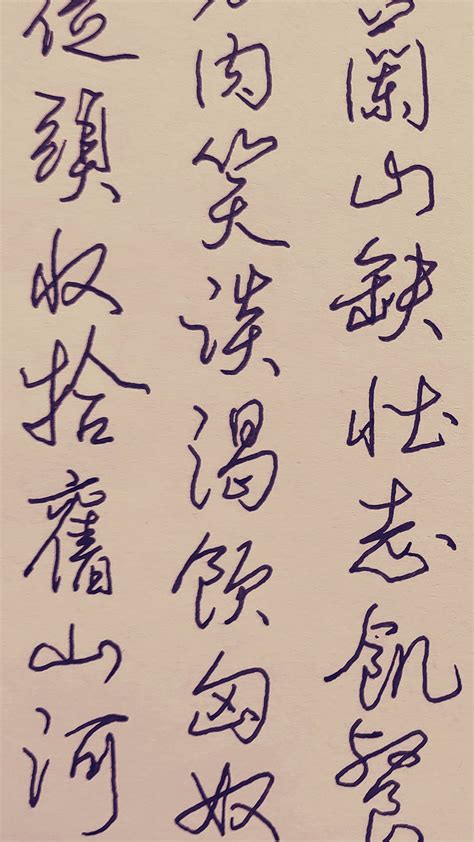 蘭山缺壯志飢餐
肉笑談渴飲匈奴
從頭收拾舊山河